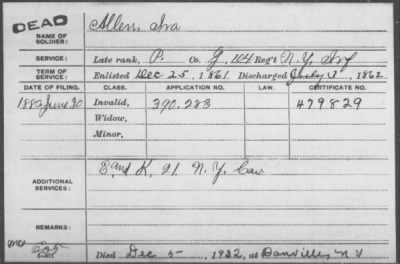 DEAD
NAME OF SOLDIER: Allen, Ira
SERVICE: Late rank, P. Co. G, 104 Reg't N.Y. Inf
TERM OF SERVICE: Enlisted Dec 25, 1861. Discharged July 3, 1862
DATE OF FILING. CLASS. APPLICATION NO. LAW. CERTIFICATE NO.
1880 June 30 Invalid, 390.283 479829
Widow,
Minor,
ADDITIONAL SERVICES: E and K, 21. N.Y. Cav.
REMARKS:
Died Dec 5-, 1922, at Dansville, N Y